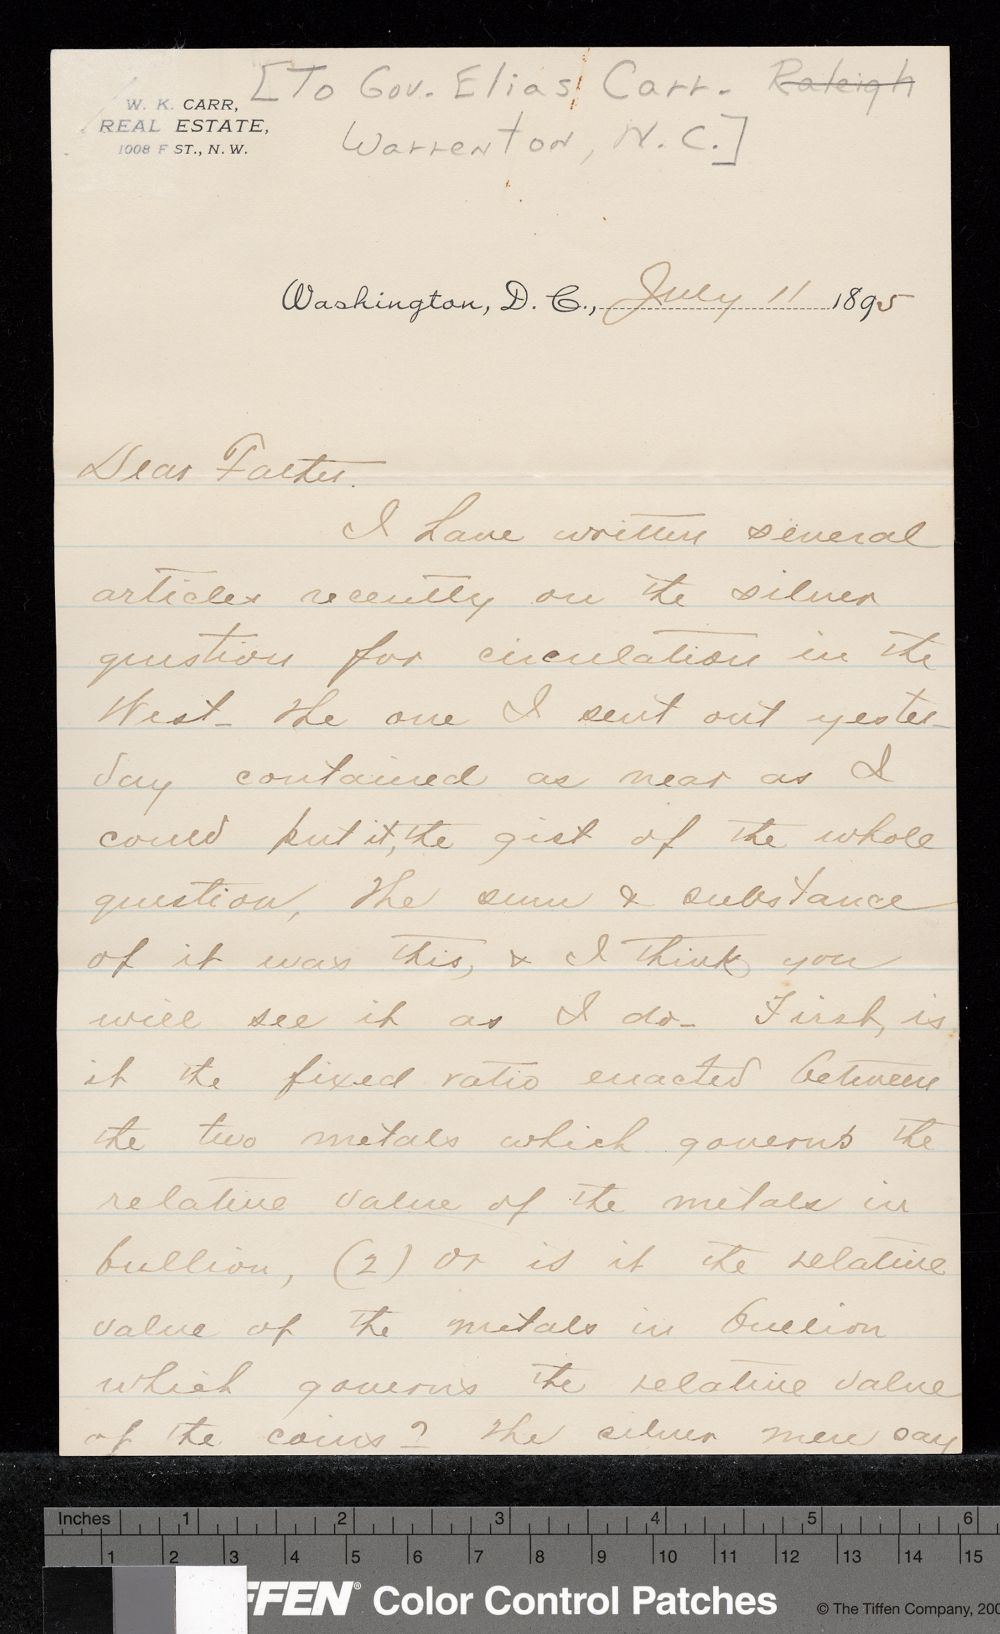 [To Gov. Elias Carr. Raleigh
Warrenton, N. C.]
W. K. CARR,
REAL ESTATE,
1008 F ST., N. W.
Washington, D. C., July 11 1895
Dear Father.
I have written several
articles recently on the silver
question for circulation in the
West_ The one I sent out yester-
day contained as near as I
could put it, the gist of the whole
question, The sum & substance
of it was this, & I think you
will see it as I do_ First, is
it the fixed ratio enacted between
the two metals which governs the
relative value of the metals in
bullion, (2) Or is it the relative
value of the metals in bullion
which governs the relative value
of the coins? The silver men say
Inches 1 2 3 4 5 6
1 2 3 4 5 6 7 8 9 10 11 12 13 14 15
FFEN® Color Control Patches
© The Tiffen Company, 200